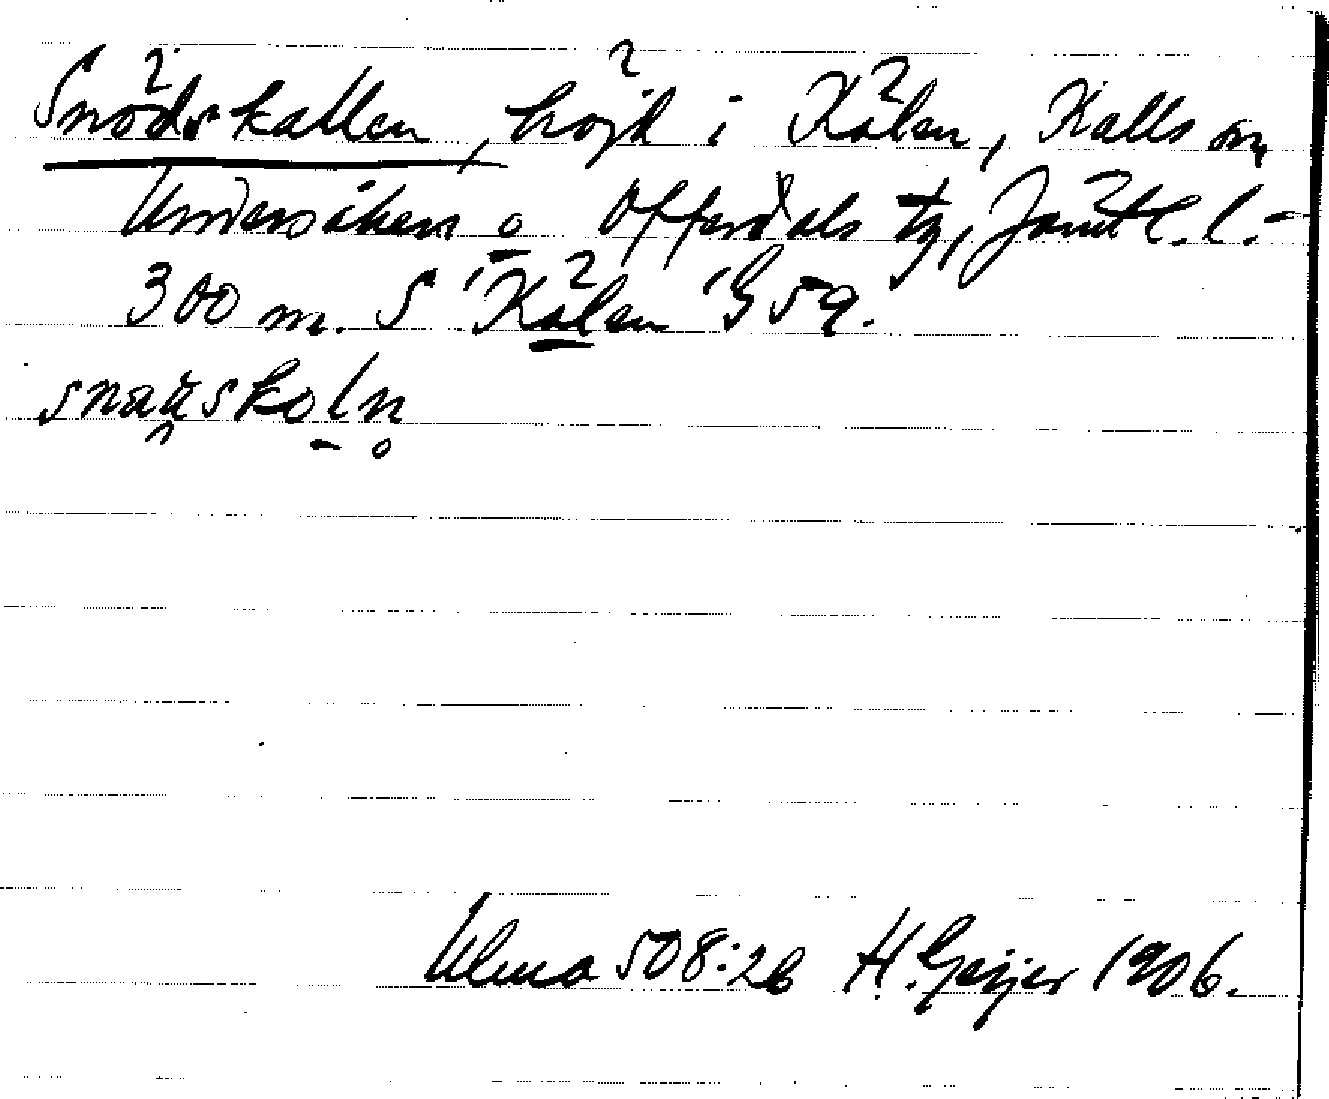 Snödskallen, höjd i Kälen, Kalls sn,
Undersåkers o Offerdals tg, Jämtl. l. -
300 m. S 'Kälen' 359.
snäuskoln
Ulma 508:26 H. Geijer 1906.